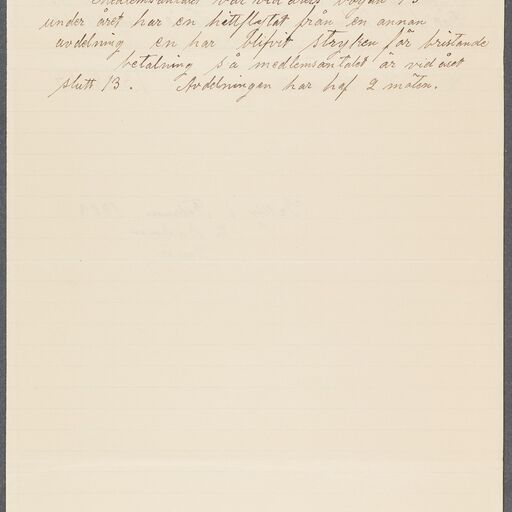 Medlemsantalet var vid årets början 13
under året har en hittflyttat från en annan
avdelning en har blifvit stryken för bristande
betalning så medlemsantalet är vid året
slutt 13. Avdelningen har haf 2 möten.